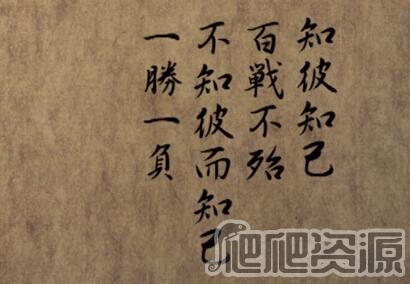 知彼知己
百戦不殆
不知彼而知己
一勝一負
爬爬资源